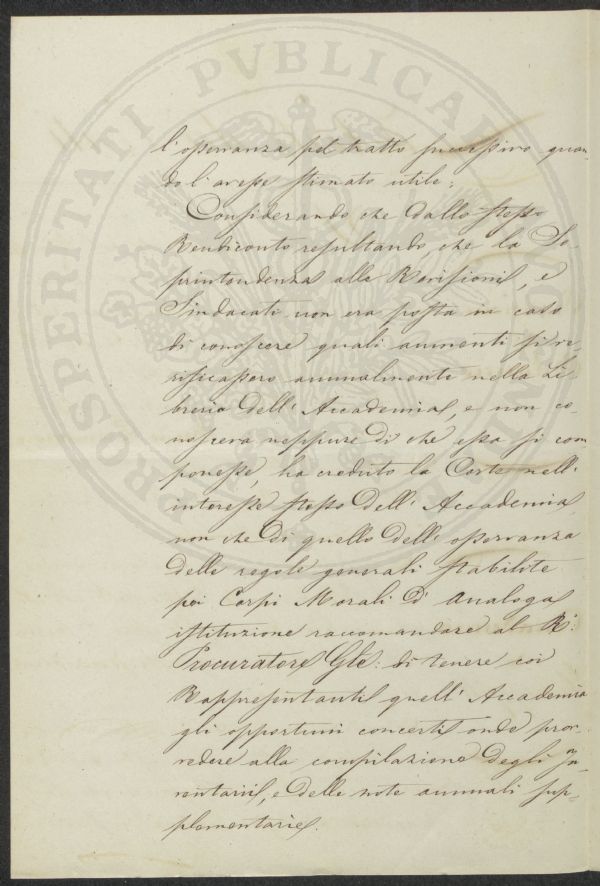 PROSPERITATI PVBLICAE
l'osservanza pel tratto successivo quan
do l'avesse stimato utile;
Considerando che dallo stesso
Rendiconto resultando, che la So-
printendenza alle Revisioni, e
Sindacati non era posta in caso
di conoscere quali aumenti si ve-
rificassero annualmente nella Li-
breria dell'Accademia, e non co-
nosceva neppure di che essa si com
ponesse, ha creduto la Corte nell'
interesse stesso dell'Accademia
non che di quello dell'osservanza
delle regole generali stabilite
pei Corpi Morali d'analoga
istituzione raccomandare al R:
Procuratore Gle: di tenere coi
Rappresentanti quell'Accademia
gli opportuni concerti onde prov-
vedere alla compilazione degli in-
ventarii, e delle note annuali sup-
plementarie.